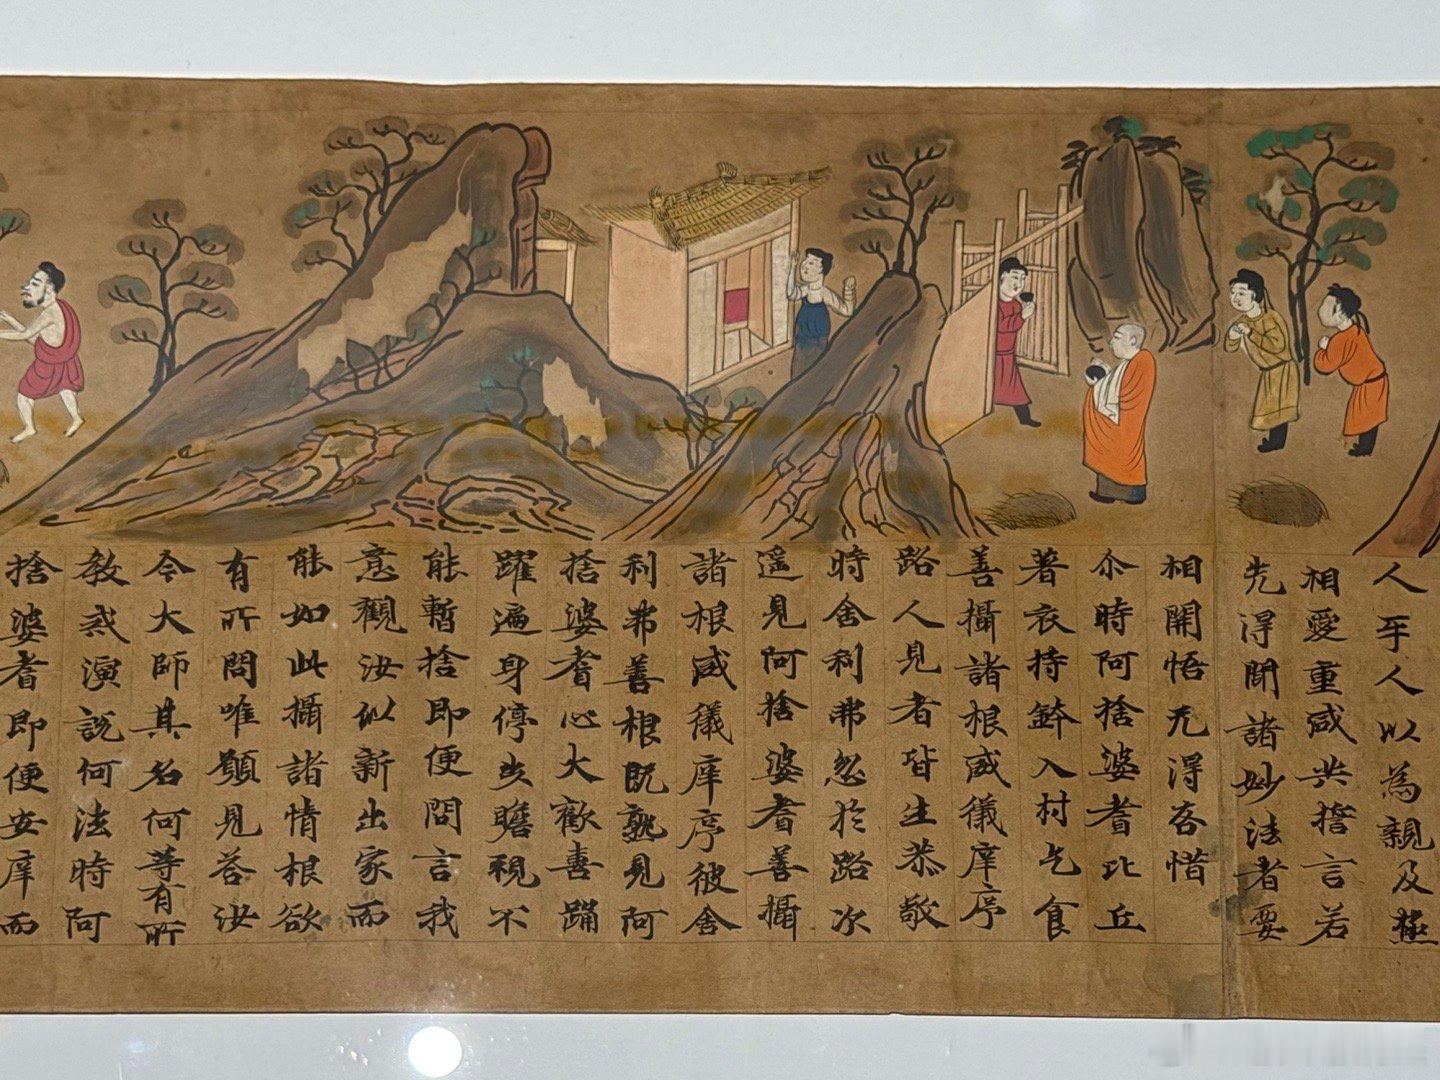 人牙人以為親友極
相愛重咸共擔言若
先得聞諸妙法者要
相開悟无得吝惜
尒時阿捨婆耆比丘
著衣持鉢入村乞食
善攝諸根威儀庠序
路人見者皆生恭敬
時舍利弗忽於路次
遥見阿捨婆耆善攝
諸根威儀庠序彼舍
利弗善根既熟見阿
捨婆耆心大歡喜踊
躍遍身停步瞻視不
能暫捨即便問言我
意觀汝似新出家而
能如此攝諸情根欲
有所問唯願見荅汝
今大師其名何等有所
教誡演說何法時阿
捨婆耆即便安庠而